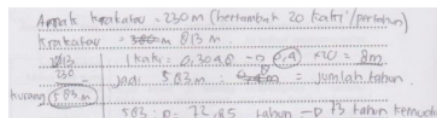 Anak krakatau = 230 m (bertambah 20 kaki/pertahun)
Krakatau = 813 m.
813 1 kaki = 0,3048 → 0,4 x20 = 8m
230 Jadi 583 m : 8 = jumlah tahun
kurang 583 m
583 : 8 = 72,85 tahun → 73 tahun kemudi